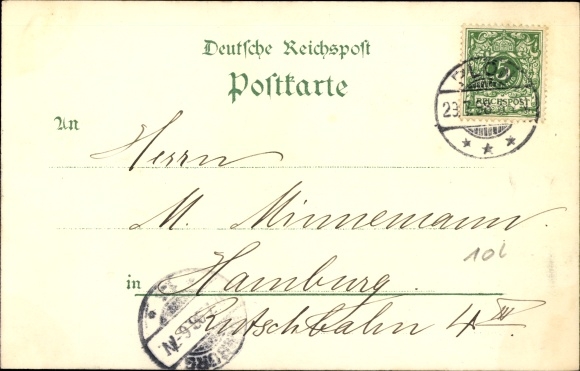 Deutsche Reichspost
Postkarte
5
REICHSPOST
An
Herrn
M. Minnemann.
in Hamburg.
Rutschbahn 4 III
10L